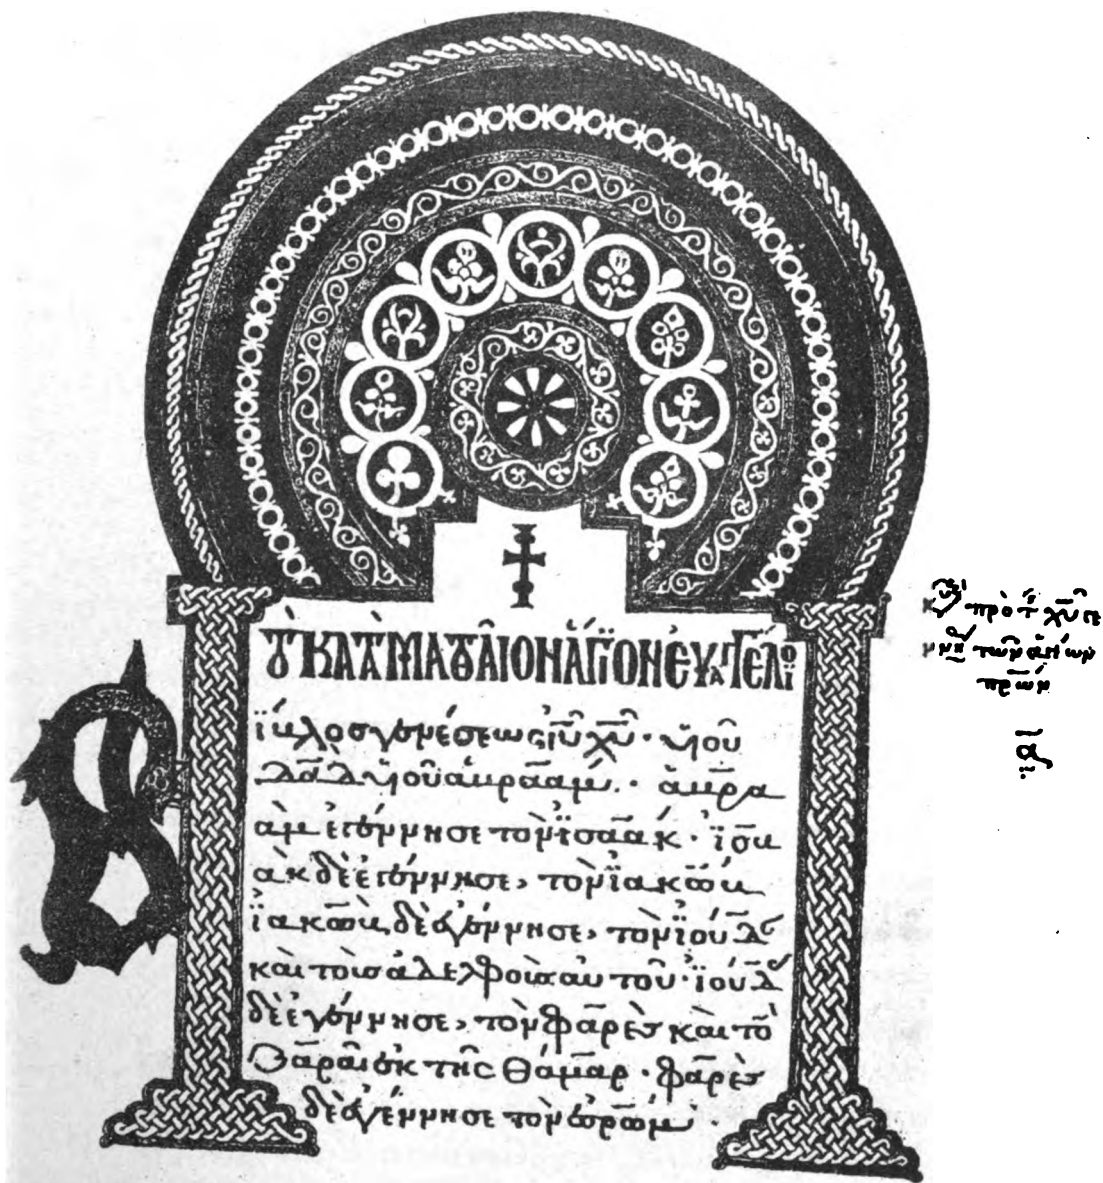 Τὸ ΚΑΤᾺ ΜΑΤΘΑῖΟΝ ἍΓΙΟΝ ΕὐΑΓΓΈΛΙΟ
ίβλος γενέσεως ἰῡ χῡ · υἱοῦ
δᾱδ υἱοῦ ἀβραάμ · ἀβρα
ὰμ ἐγέννησε τὸν ἰσαάκ · ἰσα
ὰκ δὲ ἐγέννησε, τὸν ἰακώβ
ἰακὼβ δὲ ἐγέννησε, τὸν ἰούδ
καὶ τοὺς ἀδελφοὺς αὐτοῦ · ἰούδ
δὲ ἐγέννησε, τὸν φαρὲς καὶ τὸ
ζαρὰ ἐκ τῆς θάμαρ · φαρὲς
δὲ ἐγέννησε τὸν ἐσρώμ ·
πρὸ τ χῡ γε
τῶν ἁγίων
πρ̄ων
ᾱ